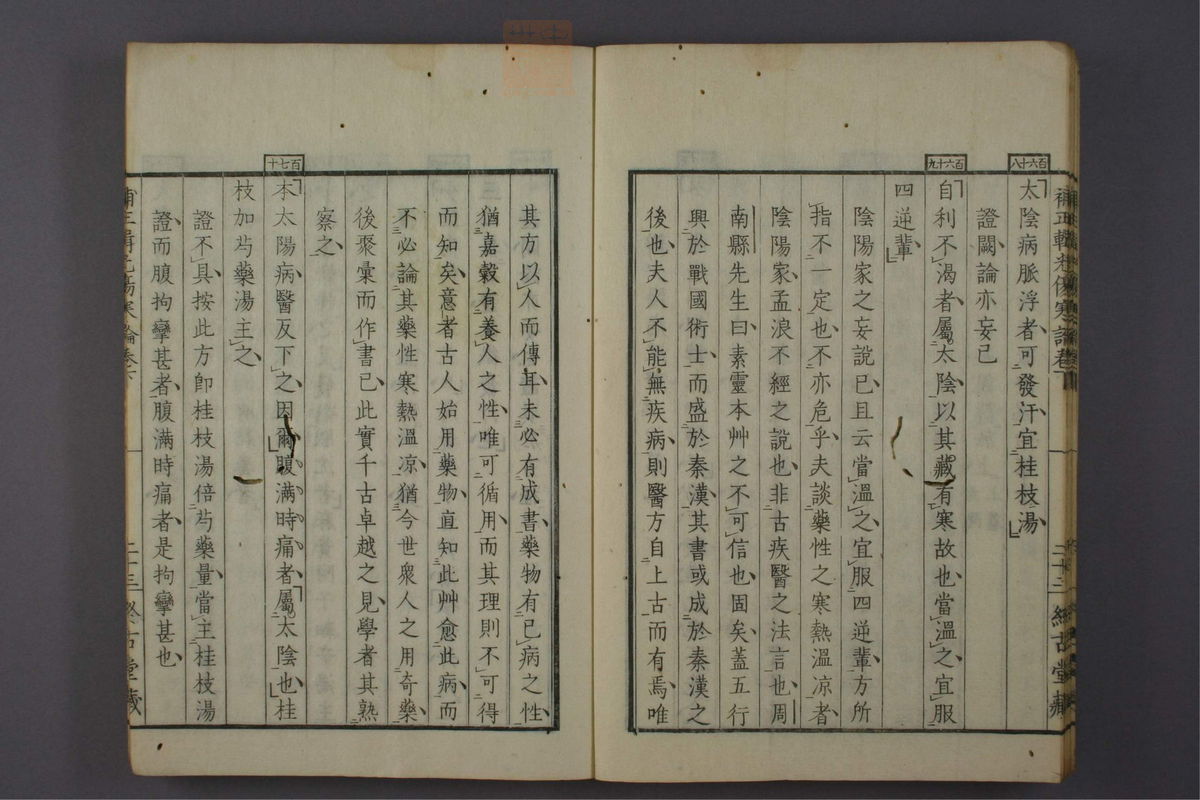 百六十八
太陰病脈浮者可發汗宜桂枝湯
證闕論亦妄已
百六十九
自利不渴者屬太陰以其藏有寒故也當溫之宜服
四逆輩
陰陽家之妄說已且云當溫之宜服四逆輩方所
指不一定也不亦危乎夫談藥性之寒熱溫涼者
陰陽家孟浪不經之說也非古疾醫之法言也周
南縣先生曰素靈本艸之不可信也固矣蓋五行
興於戰國術士而盛於秦漢其書或成於秦漢之
後也夫人不能無疾病則醫方自上古而有焉唯
其方以人而傳耳未必有成書藥物有已病之性
猶嘉穀有養人之性唯可循用而其理則不可得
而知矣意者古人始用藥物直知此艸愈此病而
不必論其藥性寒熱溫涼猶今世眾人之用奇藥
後聚彙而作書已此實千古卓越之見學者其熟
察之
百七十
本太陽病醫反下之因爾腹滿時痛者屬太陰也桂
枝加芍藥湯主之
證不具按此方卽桂枝湯倍芍藥量當主桂枝湯
證而腹拘攣甚者腹滿時痛者是拘攣甚也
二十三